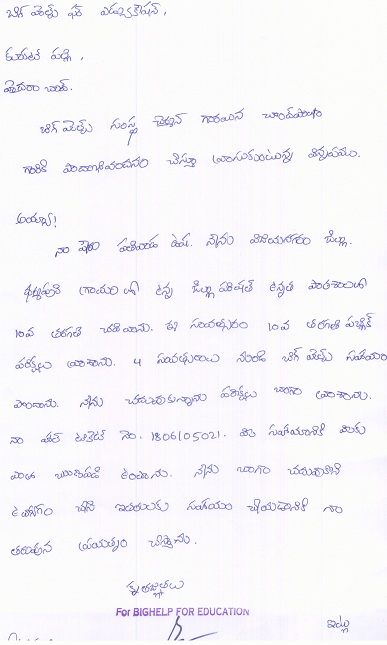 బిగ్ హెల్ప్ ఫర్ ఎడ్యుకేషన్,
హైదరా బాద్.
బిగ్ హెల్ప్ సంస్థ చైర్మన్ గారయిన చాంద్‌పాషా
గారికి పాదాభివందనం చేస్తూ వ్రాసుకుంటున్న విన్నపము.
అయ్యా!
నా పేరు ఉష. నేను విజయనగరం జిల్లా.
గ్రామం లో ఉన్న జిల్లా పరిషత్ ఉన్నత పాఠశాలలో
10వ తరగతి చదివాను. ఈ సంవత్సరం 10వ తరగతి పబ్లిక్
పరీక్షలు వ్రాశాను. 4 సంవత్సరాలు నుండి బిగ్ హెల్ప్ సహాయం
పొందాను. నేను చదువుకున్నాను పరీక్షలు బాగా వ్రాశాను.
నా హాల్ టికెట్ నెం. 1806105021. మీ సహాయానికి మీకు
ఋణపడి ఉంటాను. నేను బాగా చదువుకొని
ఉద్యోగం చేసి ఇతరులకు సహాయం చేయడానికి నా
తరుపున ప్రయత్నం చేస్తాను.
కృతజ్ఞతలు
For BIGHELP FOR EDUCATION
ఇట్లు